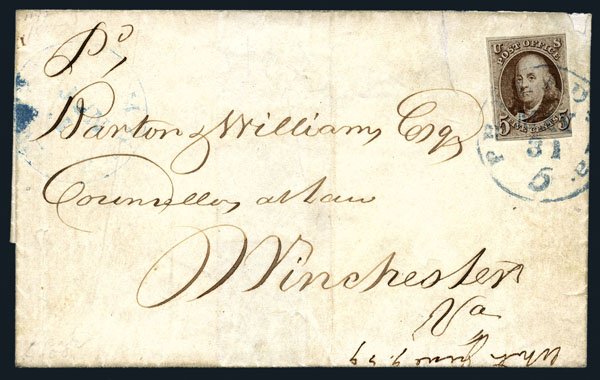 Pd,
U S
POST OFFICE
Barton & Williams Esqs
5 FIVE CENTS 5
Counsellors at Law
31
5
Winchester
Va
June 9. 49